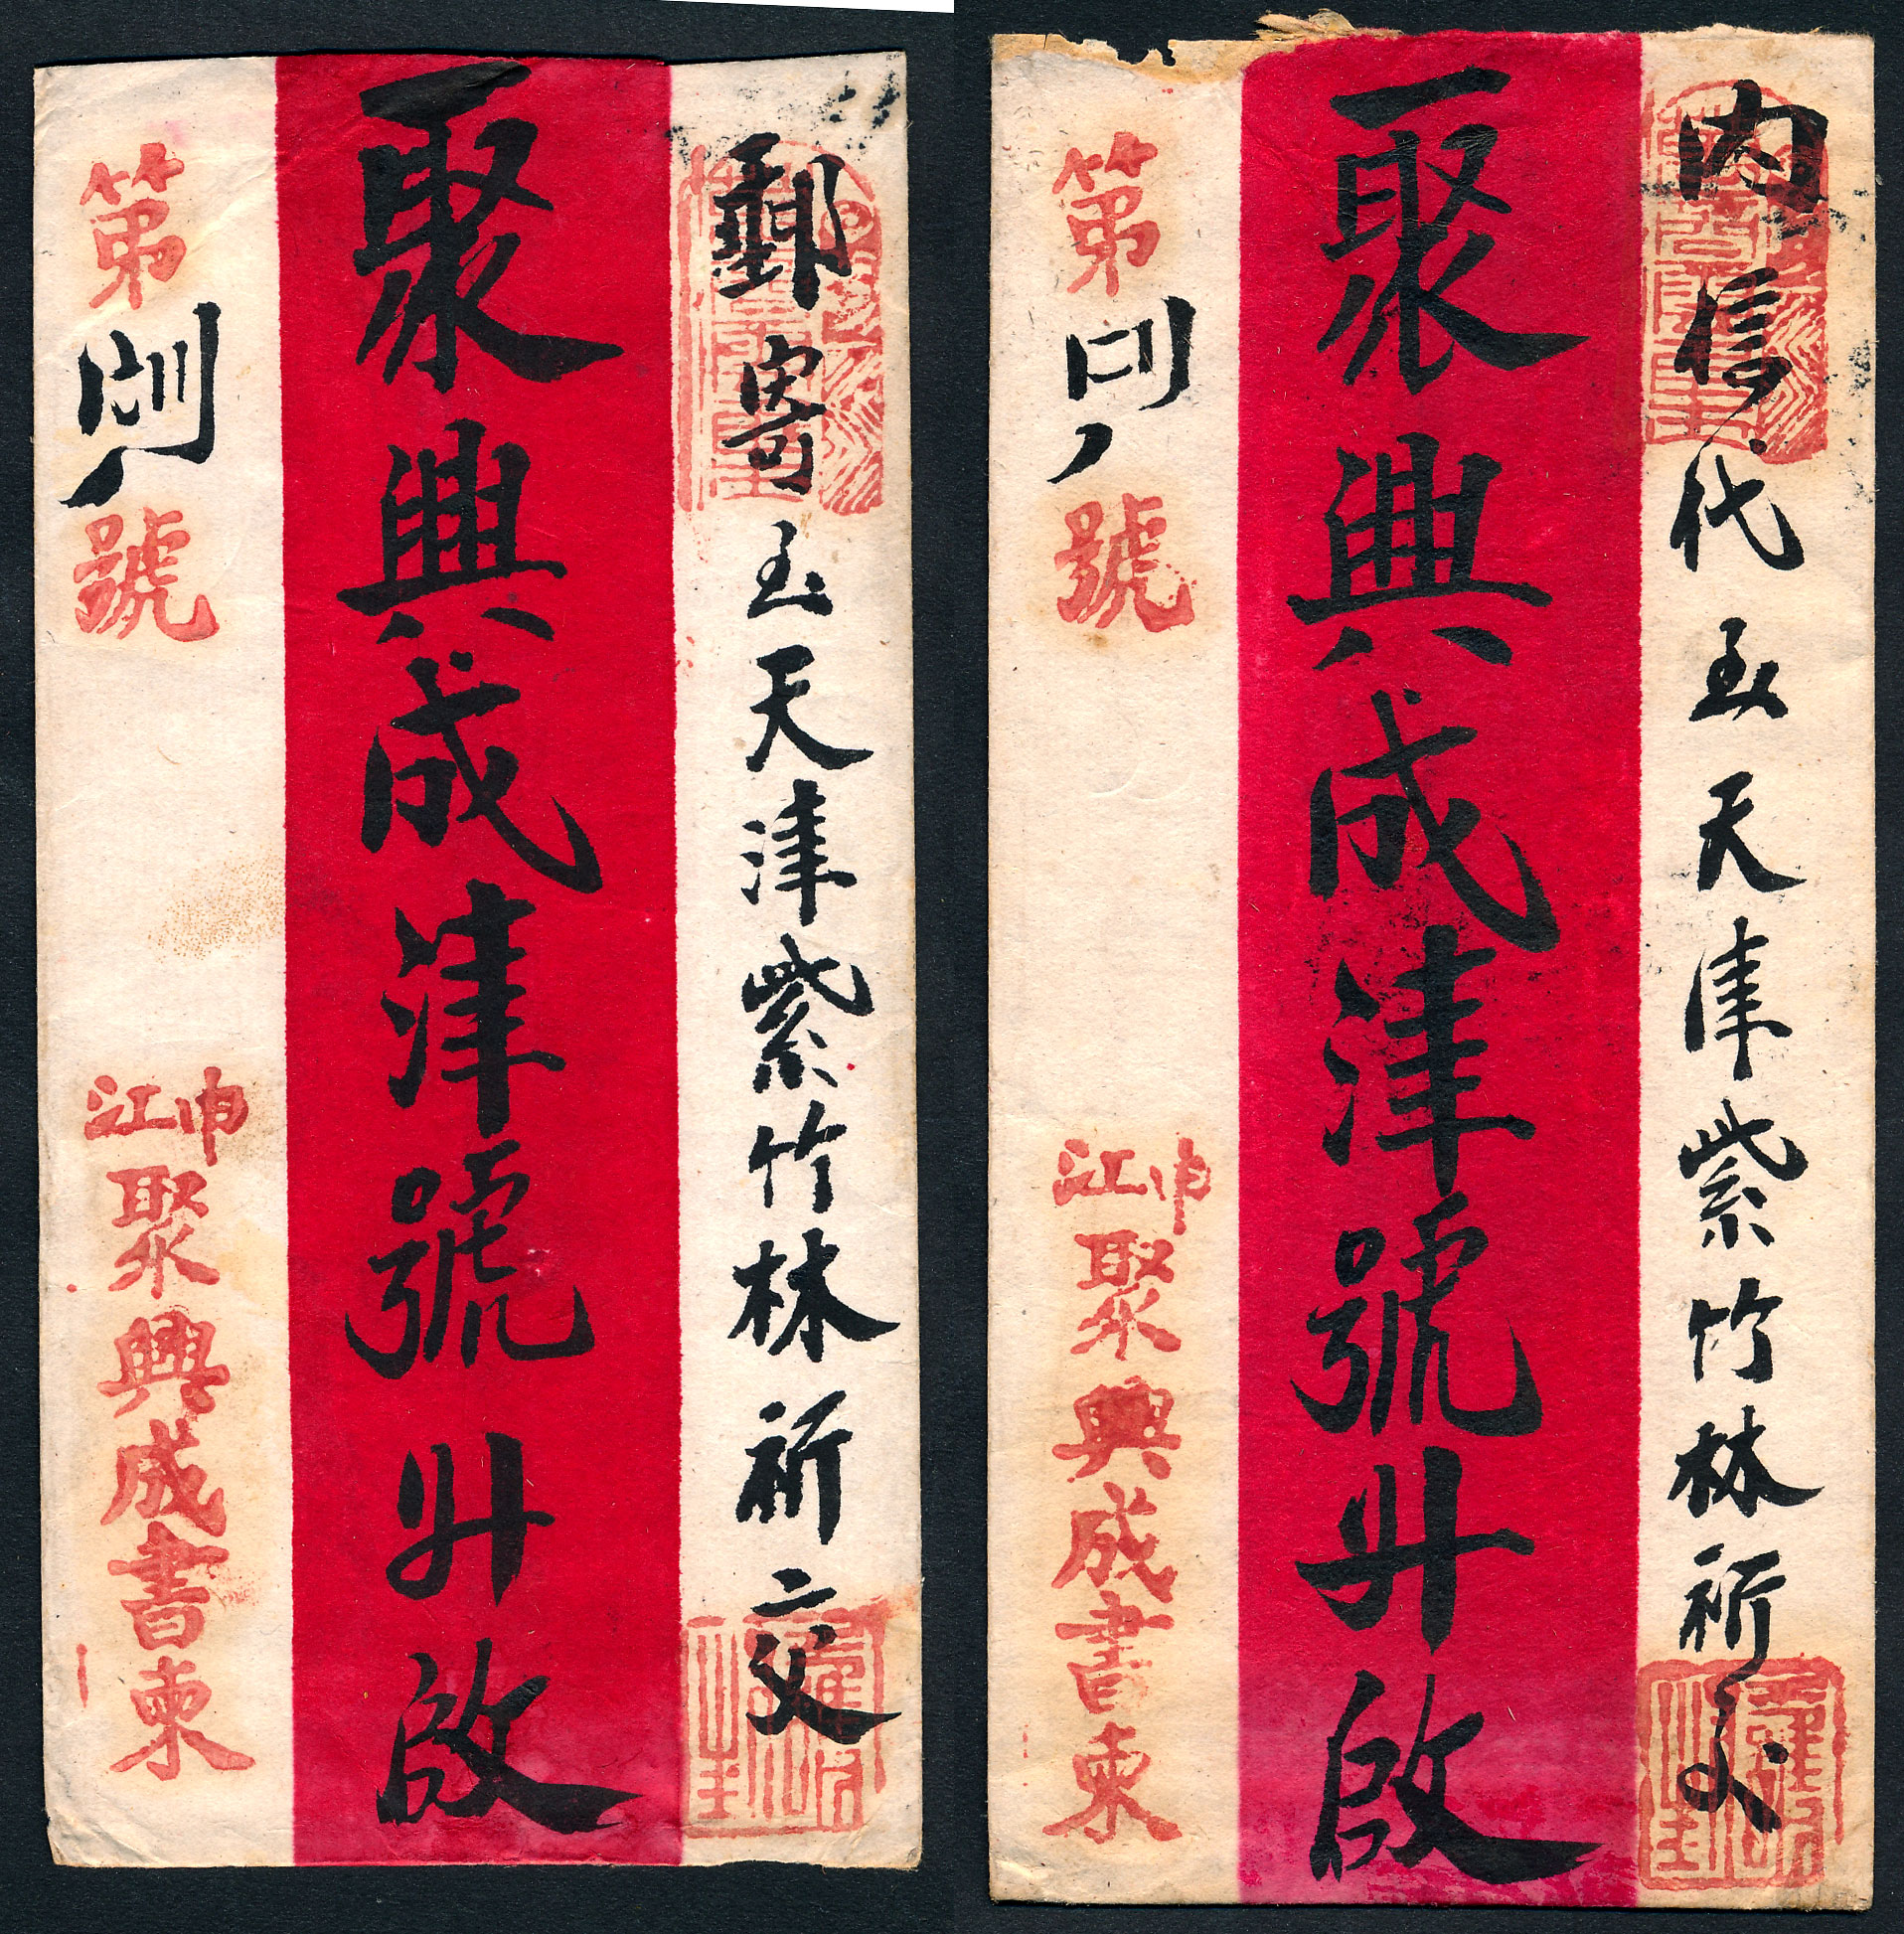 郵寄至天津紫竹林祈二父
聚興成津號升啟
第
號
申江
聚興成書柬
內信代至天津紫竹林祈
聚興成津號升啟
第
號
申江
聚興成書柬